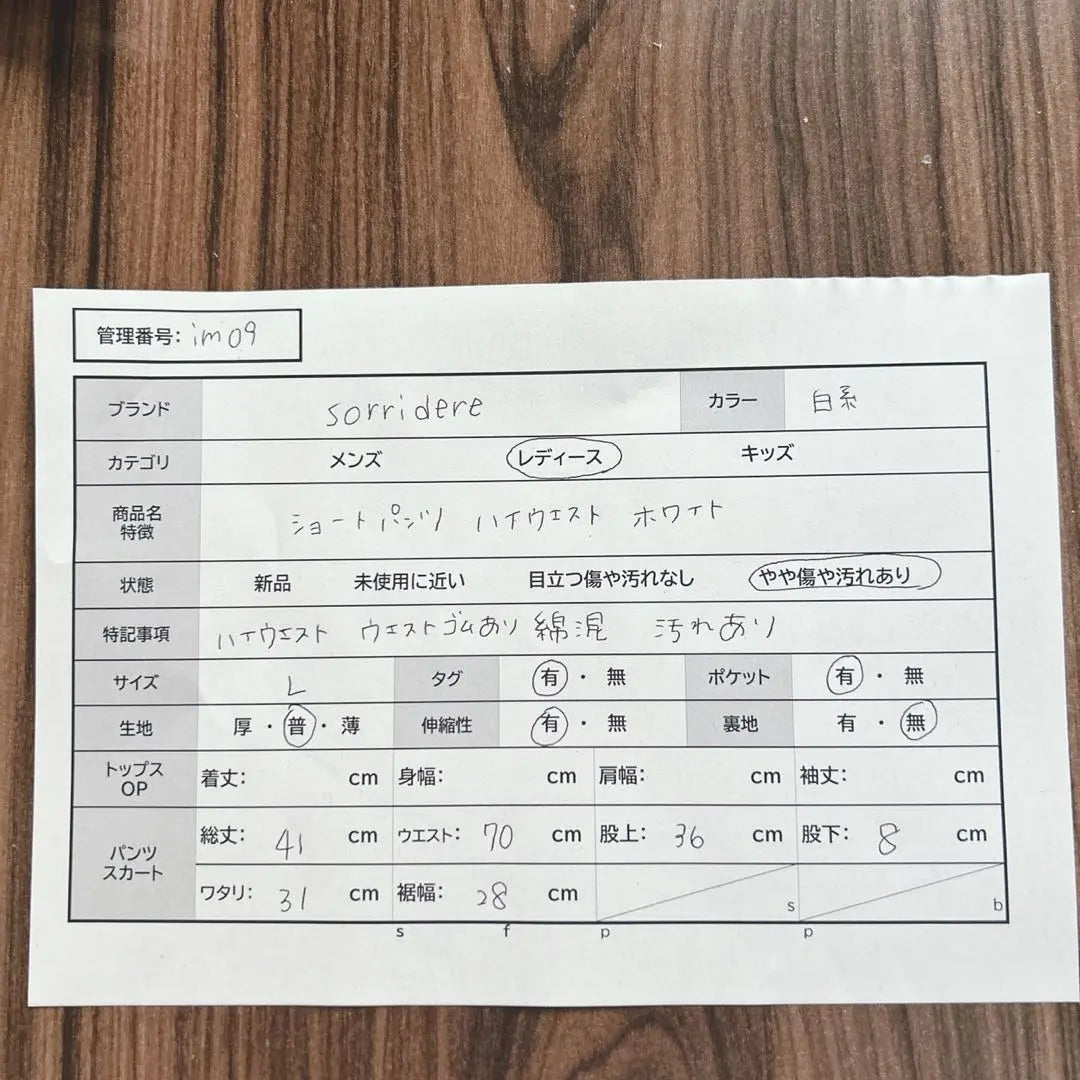 管理番号: im09
ブランド sorridere カラー 白系
カテゴリ メンズ レディース キッズ
商品名 特徴 ショートパンツ ハイウエスト ホワイト
状態 新品 未使用に近い 目立つ傷や汚れなし やや傷や汚れあり
特記事項 ハイウエスト ウエストゴムあり 綿混 汚れあり
サイズ L タグ 有・無 ポケット 有・無
生地 厚・普・薄 伸縮性 有・無 裏地 有・無
トップス OP 着丈: cm 身幅: cm 肩幅: cm 袖丈: cm
パンツ スカート 総丈: 41 cm ウエスト: 70 cm 股上: 36 cm 股下: 8 cm
ワタリ: 31 cm 裾幅: 28 cm s b
s f p p